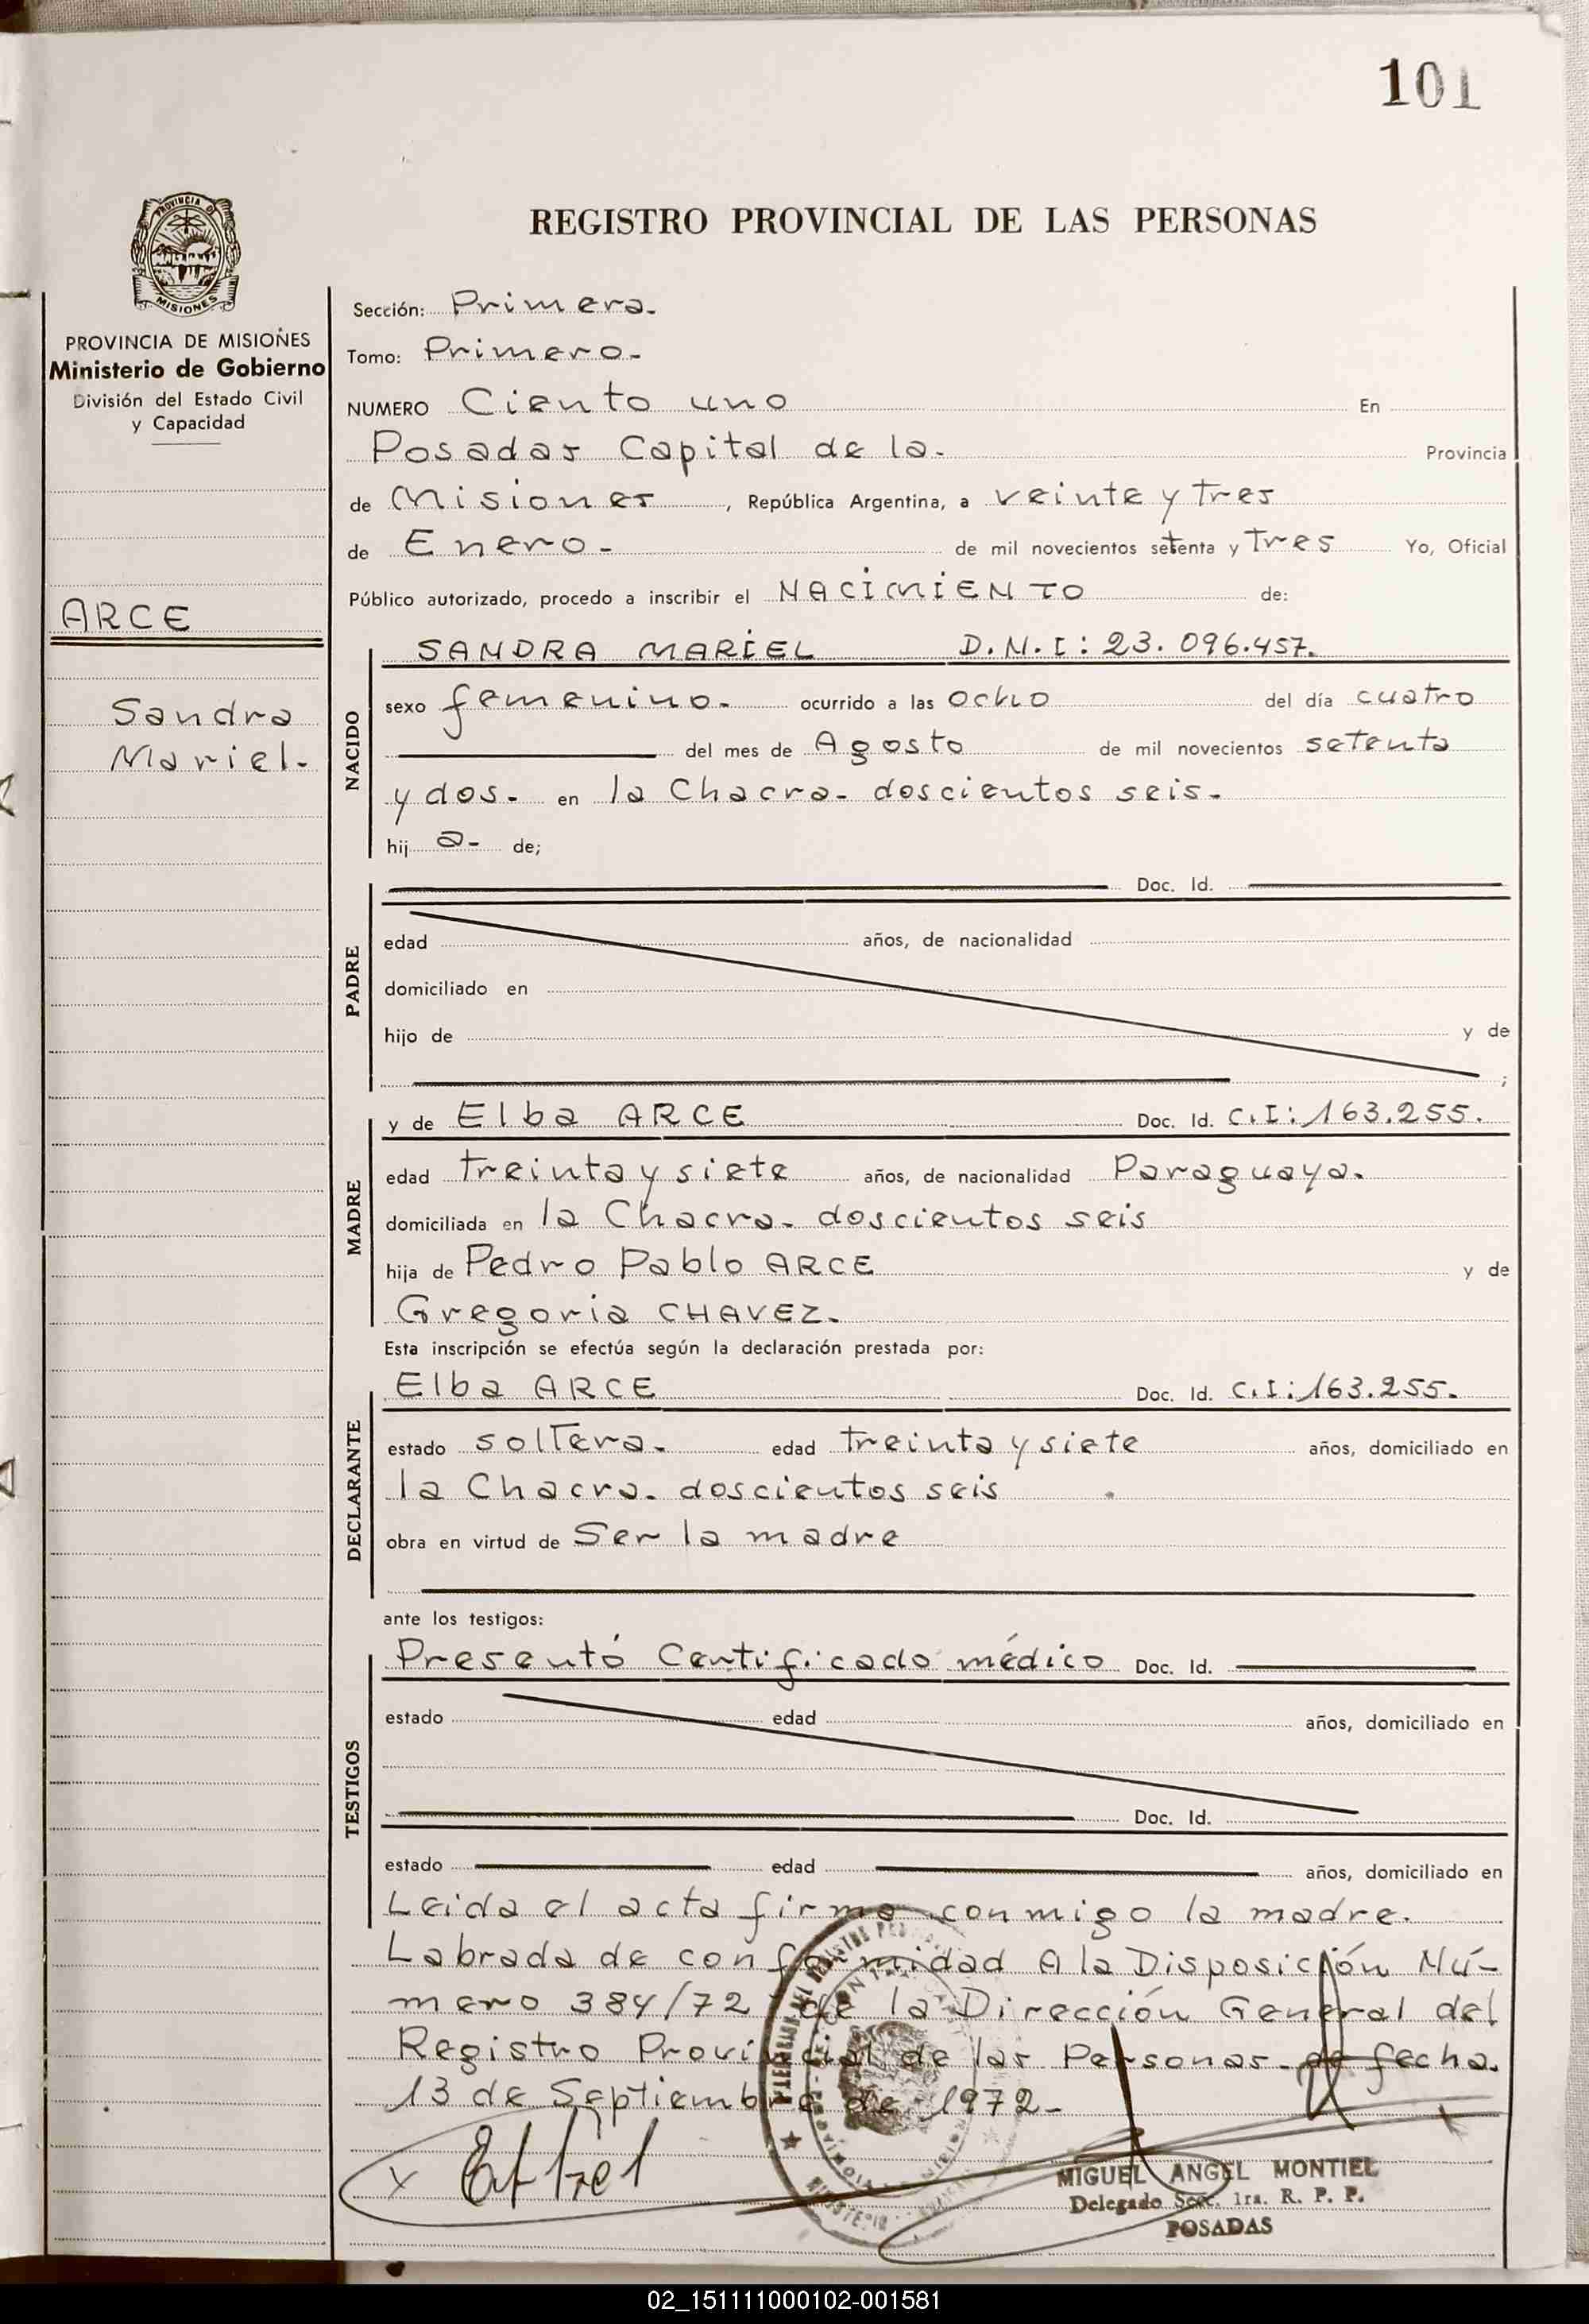 101
PROVINCIA DE
MISIONES
PROVINCIA DE MISIONES
Ministerio de Gobierno
División del Estado Civil
y Capacidad
ARCE
Sandra
Mariel.
REGISTRO PROVINCIAL DE LAS PERSONAS
Sección: Primera.
Tomo: Primero.
NUMERO Ciento uno En
Posadas Capital de la. Provincia
de Misiones, República Argentina, a veinte y tres
de Enero. de mil novecientos setenta y Tres Yo, Oficial
Público autorizado, procedo a inscribir el NACIMIENTO de:
NACIDO
SANDRA MARIEL D.N.I: 23.096.457.
sexo femenino. ocurrido a las ocho del día cuatro
del mes de Agosto de mil novecientos setenta
y dos. en la Chacra. doscientos seis.
hij a. de;
PADRE
Doc. Id.
edad años, de nacionalidad
domiciliado en
hijo de y de
;
MADRE
y de Elba ARCE Doc. Id. C.I: 163.255.
edad treinta y siete años, de nacionalidad Paraguaya.
domiciliada en la Chacra. doscientos seis
hija de Pedro Pablo ARCE y de
Gregoria CHAVEZ.
Esta inscripción se efectúa según la declaración prestada por:
DECLARANTE
Elba ARCE Doc. Id. C.I: 163.255.
estado soltera. edad treinta y siete años, domiciliado en
la Chacra. doscientos seis
obra en virtud de Ser la madre
ante los testigos:
TESTIGOS
Presentó Certificado médico Doc. Id.
estado edad años, domiciliado en
Doc. Id.
estado edad años, domiciliado en
Leida el acta firma conmigo la madre.
Labrada de conformidad A la Disposición Nú-
mero 384/72 de la Dirección General del
Registro Provincial de las Personas de fecha.
13 de Septiembre de 1972-
MIGUEL ANGEL MONTIEL
Delegado Secc. 1ra. R. P. P.
POSADAS
02_151111000102-001581